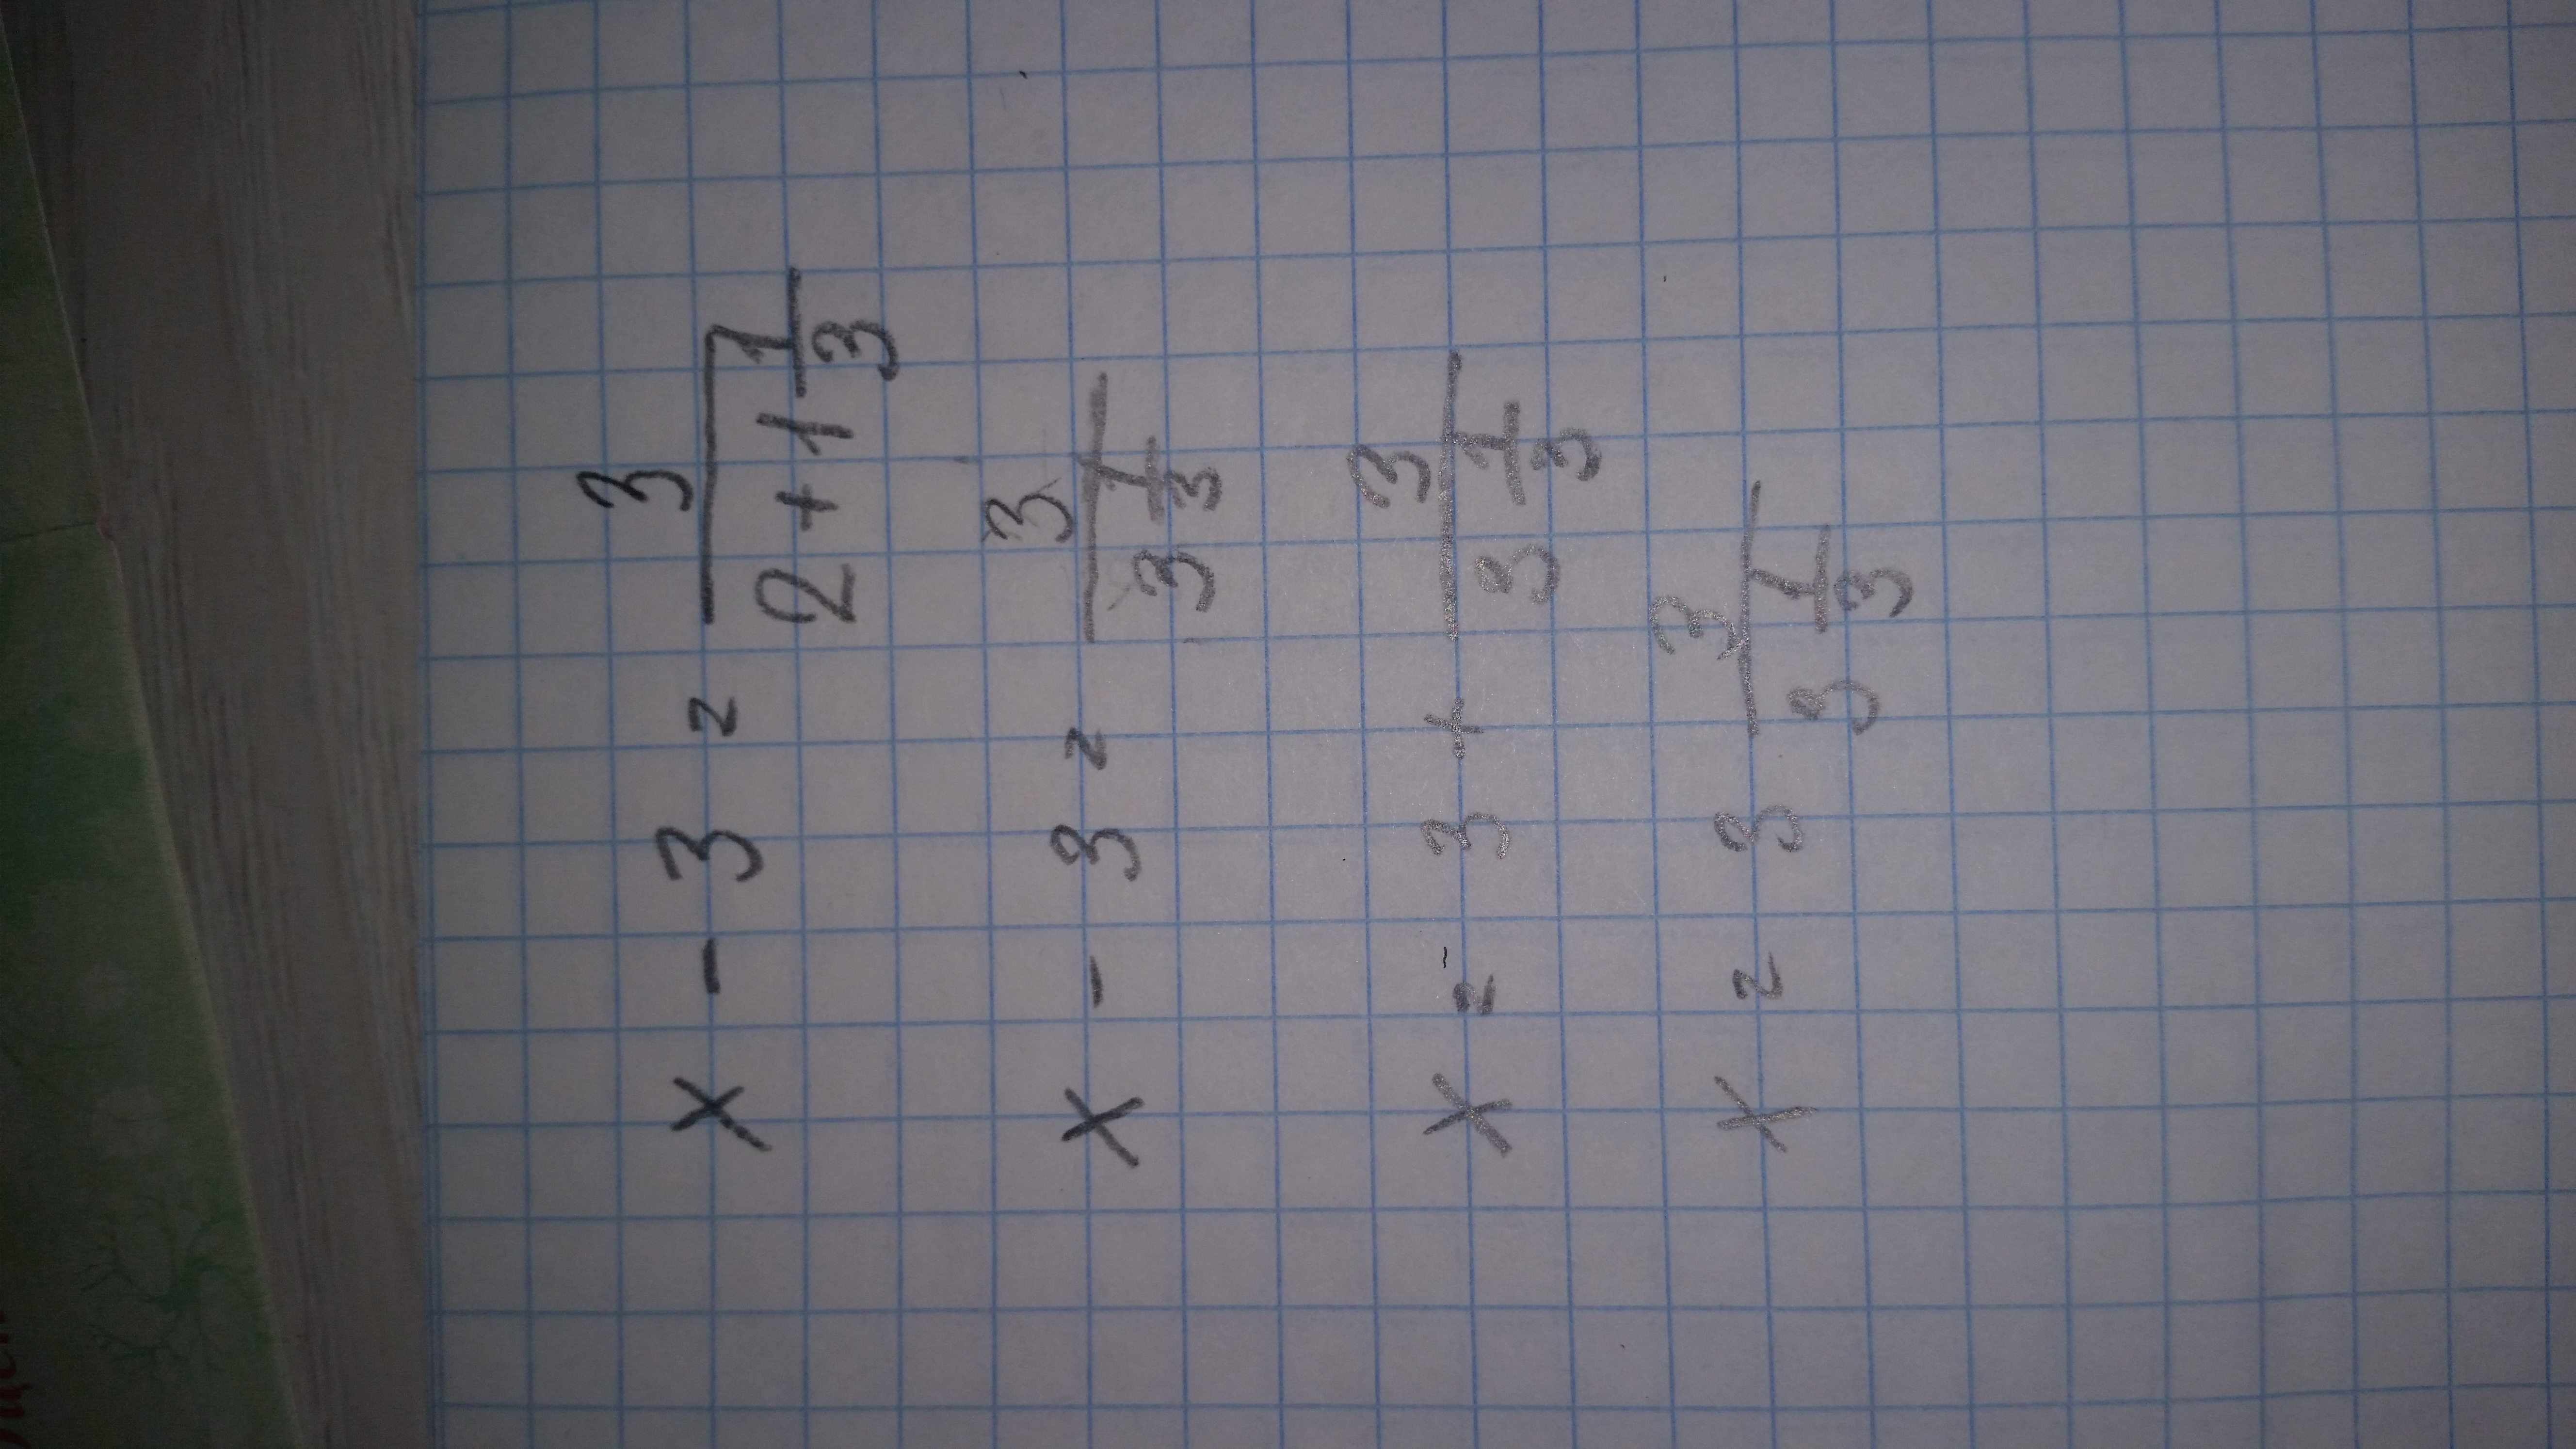 x - 3 = 3/(2 + 1 1/3)
x - 3 = 3/(3 1/3)
x = 3 + 3/(3 1/3)
x = 3 3/(3 1/3)